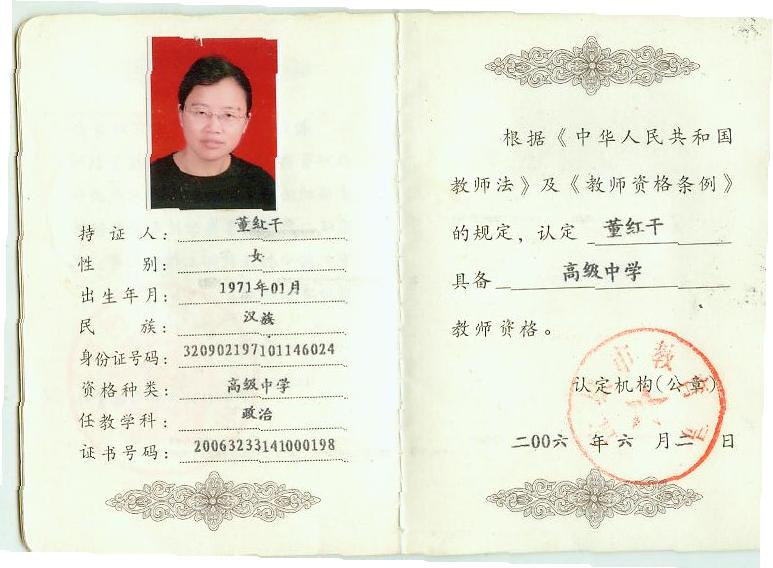 持证人：董红干
性别：女
出生年月：1971年01月
民族：汉族
身份证号码：320902197101146024
资格种类：高级中学
任教学科：政治
证书号码：20063233141000198
根据《中华人民共和国
教师法》及《教师资格条例》
的规定，认定 董红干
具备 高级中学
教师资格。
市教
认定机构(公章)
二00六 年 六 月 二 日